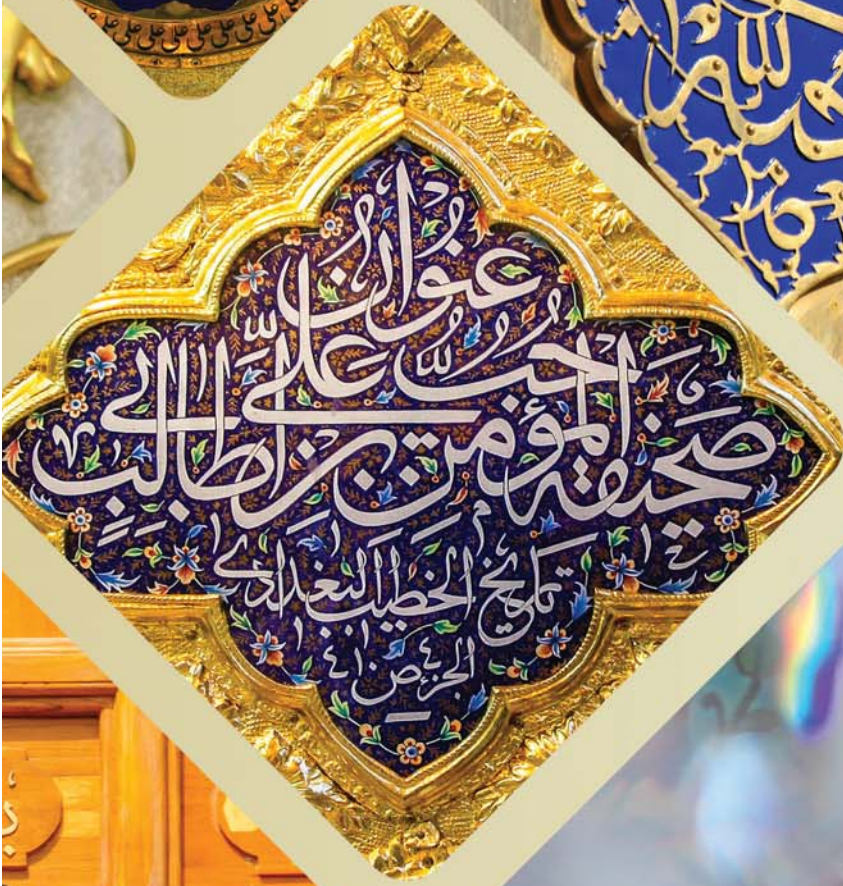 عنوان
صحيفة المؤمن حب علي بن ابي طالب
تاريخ الخطيب البغدادي
الجزء ٤ ص ٤١٠